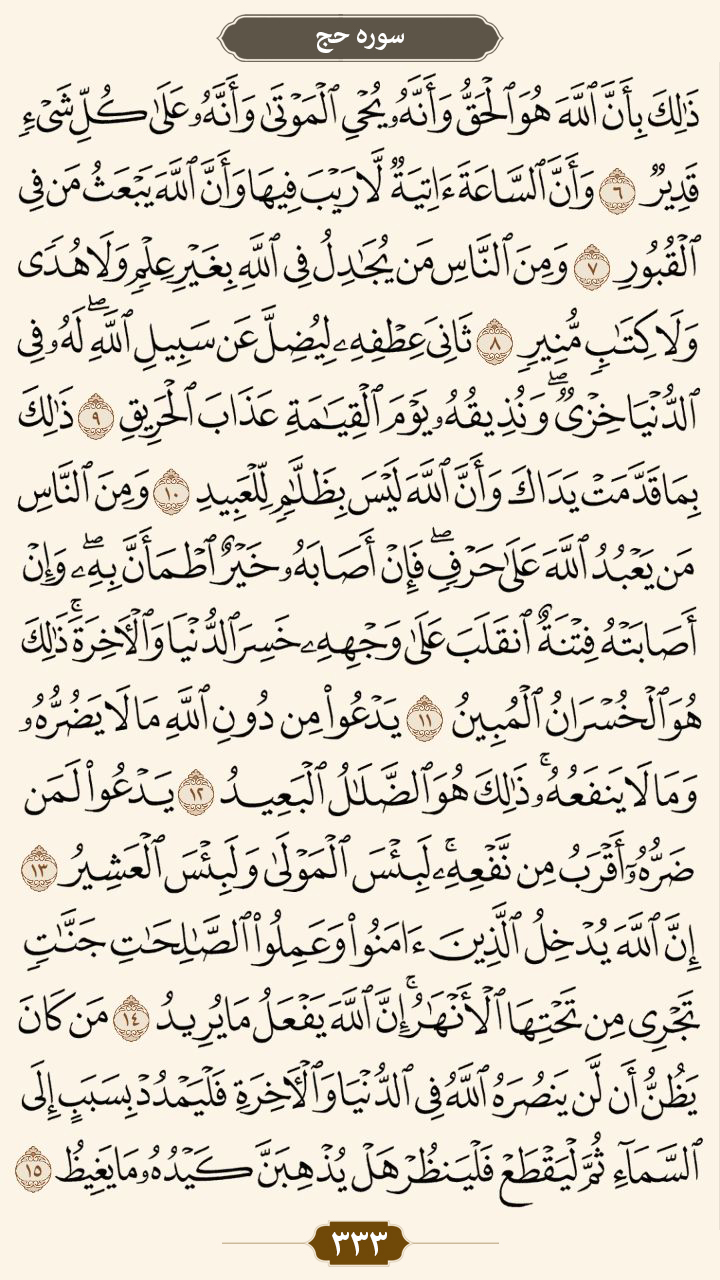 سوره حج
ذَٰلِكَ بِأَنَّ ٱللَّهَ هُوَ ٱلۡحَقُّ وَأَنَّهُۥ يُحۡيِ ٱلۡمَوۡتَىٰ وَأَنَّهُۥ عَلَىٰ كُلِّ شَيۡءٖ
قَدِيرٞ ٦ وَأَنَّ ٱلسَّاعَةَ ءَاتِيَةٞ لَّا رَيۡبَ فِيهَا وَأَنَّ ٱللَّهَ يَبۡعَثُ مَن فِي
ٱلۡقُبُورِ ٧ وَمِنَ ٱلنَّاسِ مَن يُجَٰدِلُ فِي ٱللَّهِ بِغَيۡرِ عِلۡمٖ وَلَا هُدٗى
وَلَا كِتَٰبٖ مُّنِيرٖ ٨ ثَانِيَ عِطۡفِهِۦ لِيُضِلَّ عَن سَبِيلِ ٱللَّهِۖ لَهُۥ فِي
ٱلدُّنۡيَا خِزۡيٞۖ وَنُذِيقُهُۥ يَوۡمَ ٱلۡقِيَٰمَةِ عَذَابَ ٱلۡحَرِيقِ ٩ ذَٰلِكَ
بِمَا قَدَّمَتۡ يَدَاكَ وَأَنَّ ٱللَّهَ لَيۡسَ بِظَلَّٰمٖ لِّلۡعَبِيدِ ١٠ وَمِنَ ٱلنَّاسِ
مَن يَعۡبُدُ ٱللَّهَ عَلَىٰ حَرۡفٖۖ فَإِنۡ أَصَابَهُۥ خَيۡرٌ ٱطۡمَأَنَّ بِهِۦۖ وَإِنۡ
أَصَابَتۡهُ فِتۡنَةٌ ٱنقَلَبَ عَلَىٰ وَجۡهِهِۦ خَسِرَ ٱلدُّنۡيَا وَٱلۡأٓخِرَةَۚ ذَٰلِكَ
هُوَ ٱلۡخُسۡرَانُ ٱلۡمُبِينُ ١١ يَدۡعُواْ مِن دُونِ ٱللَّهِ مَا لَا يَضُرُّهُۥ
وَمَا لَا يَنفَعُهُۥۚ ذَٰلِكَ هُوَ ٱلضَّلَٰلُ ٱلۡبَعِيدُ ١٢ يَدۡعُواْ لَمَن
ضَرُّهُۥٓ أَقۡرَبُ مِن نَّفۡعِهِۦۚ لَبِئۡسَ ٱلۡمَوۡلَىٰ وَلَبِئۡسَ ٱلۡعَشِيرُ ١٣
إِنَّ ٱللَّهَ يُدۡخِلُ ٱلَّذِينَ ءَامَنُواْ وَعَمِلُواْ ٱلصَّٰلِحَٰتِ جَنَّٰتٖ
تَجۡرِي مِن تَحۡتِهَا ٱلۡأَنۡهَٰرُۚ إِنَّ ٱللَّهَ يَفۡعَلُ مَا يُرِيدُ ١٤ مَن كَانَ
يَظُنُّ أَن لَّن يَنصُرَهُ ٱللَّهُ فِي ٱلدُّنۡيَا وَٱلۡأٓخِرَةِ فَلۡيَمۡدُدۡ بِسَبَبٍ إِلَى
ٱلسَّمَآءِ ثُمَّ لۡيَقۡطَعۡ فَلۡيَنظُرۡ هَلۡ يُذۡهِبَنَّ كَيۡدُهُۥ مَا يَغِيظُ ١٥
٣٣٣